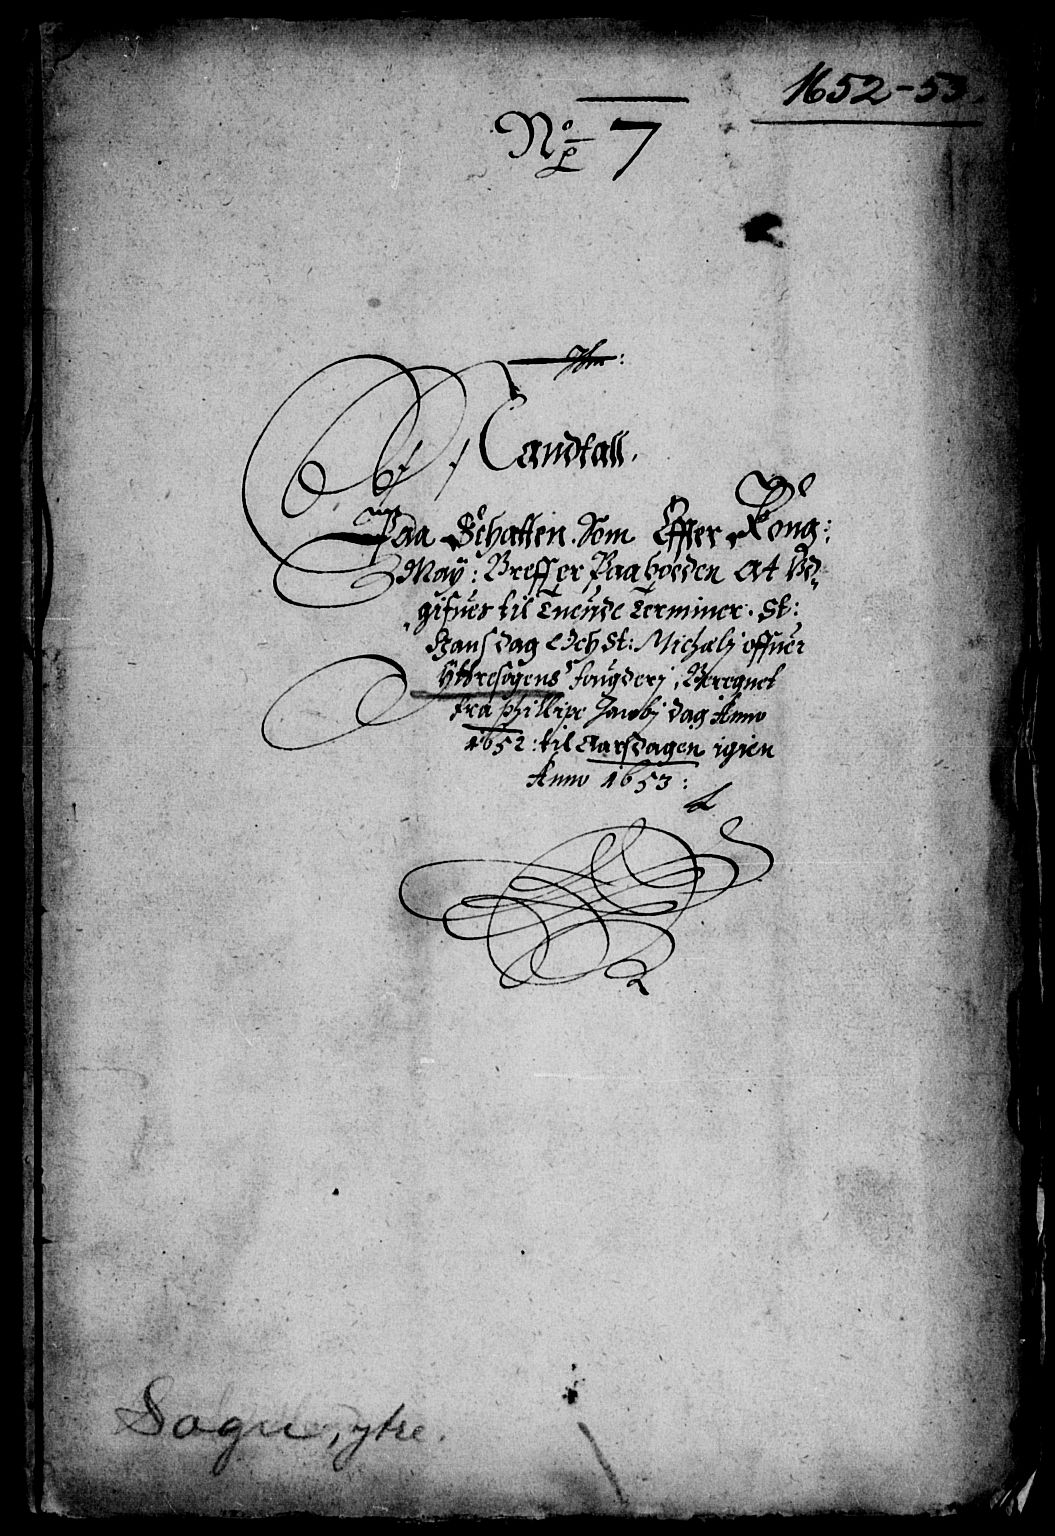 1652-53.
No 7
Mandtall.
Paa Schatten Som Effter Kong:
May: Breffuer Paaboeden At Vd-
gifues til Tuende Terminer. St:
Hans dag Och St: Michelj offuer
Yttresogens fougderj, Beregnet
fra Phillipi Jacobj dag Anno
1652: til Aarsdagen igien
Anno 1653:
Sogn, ytre.